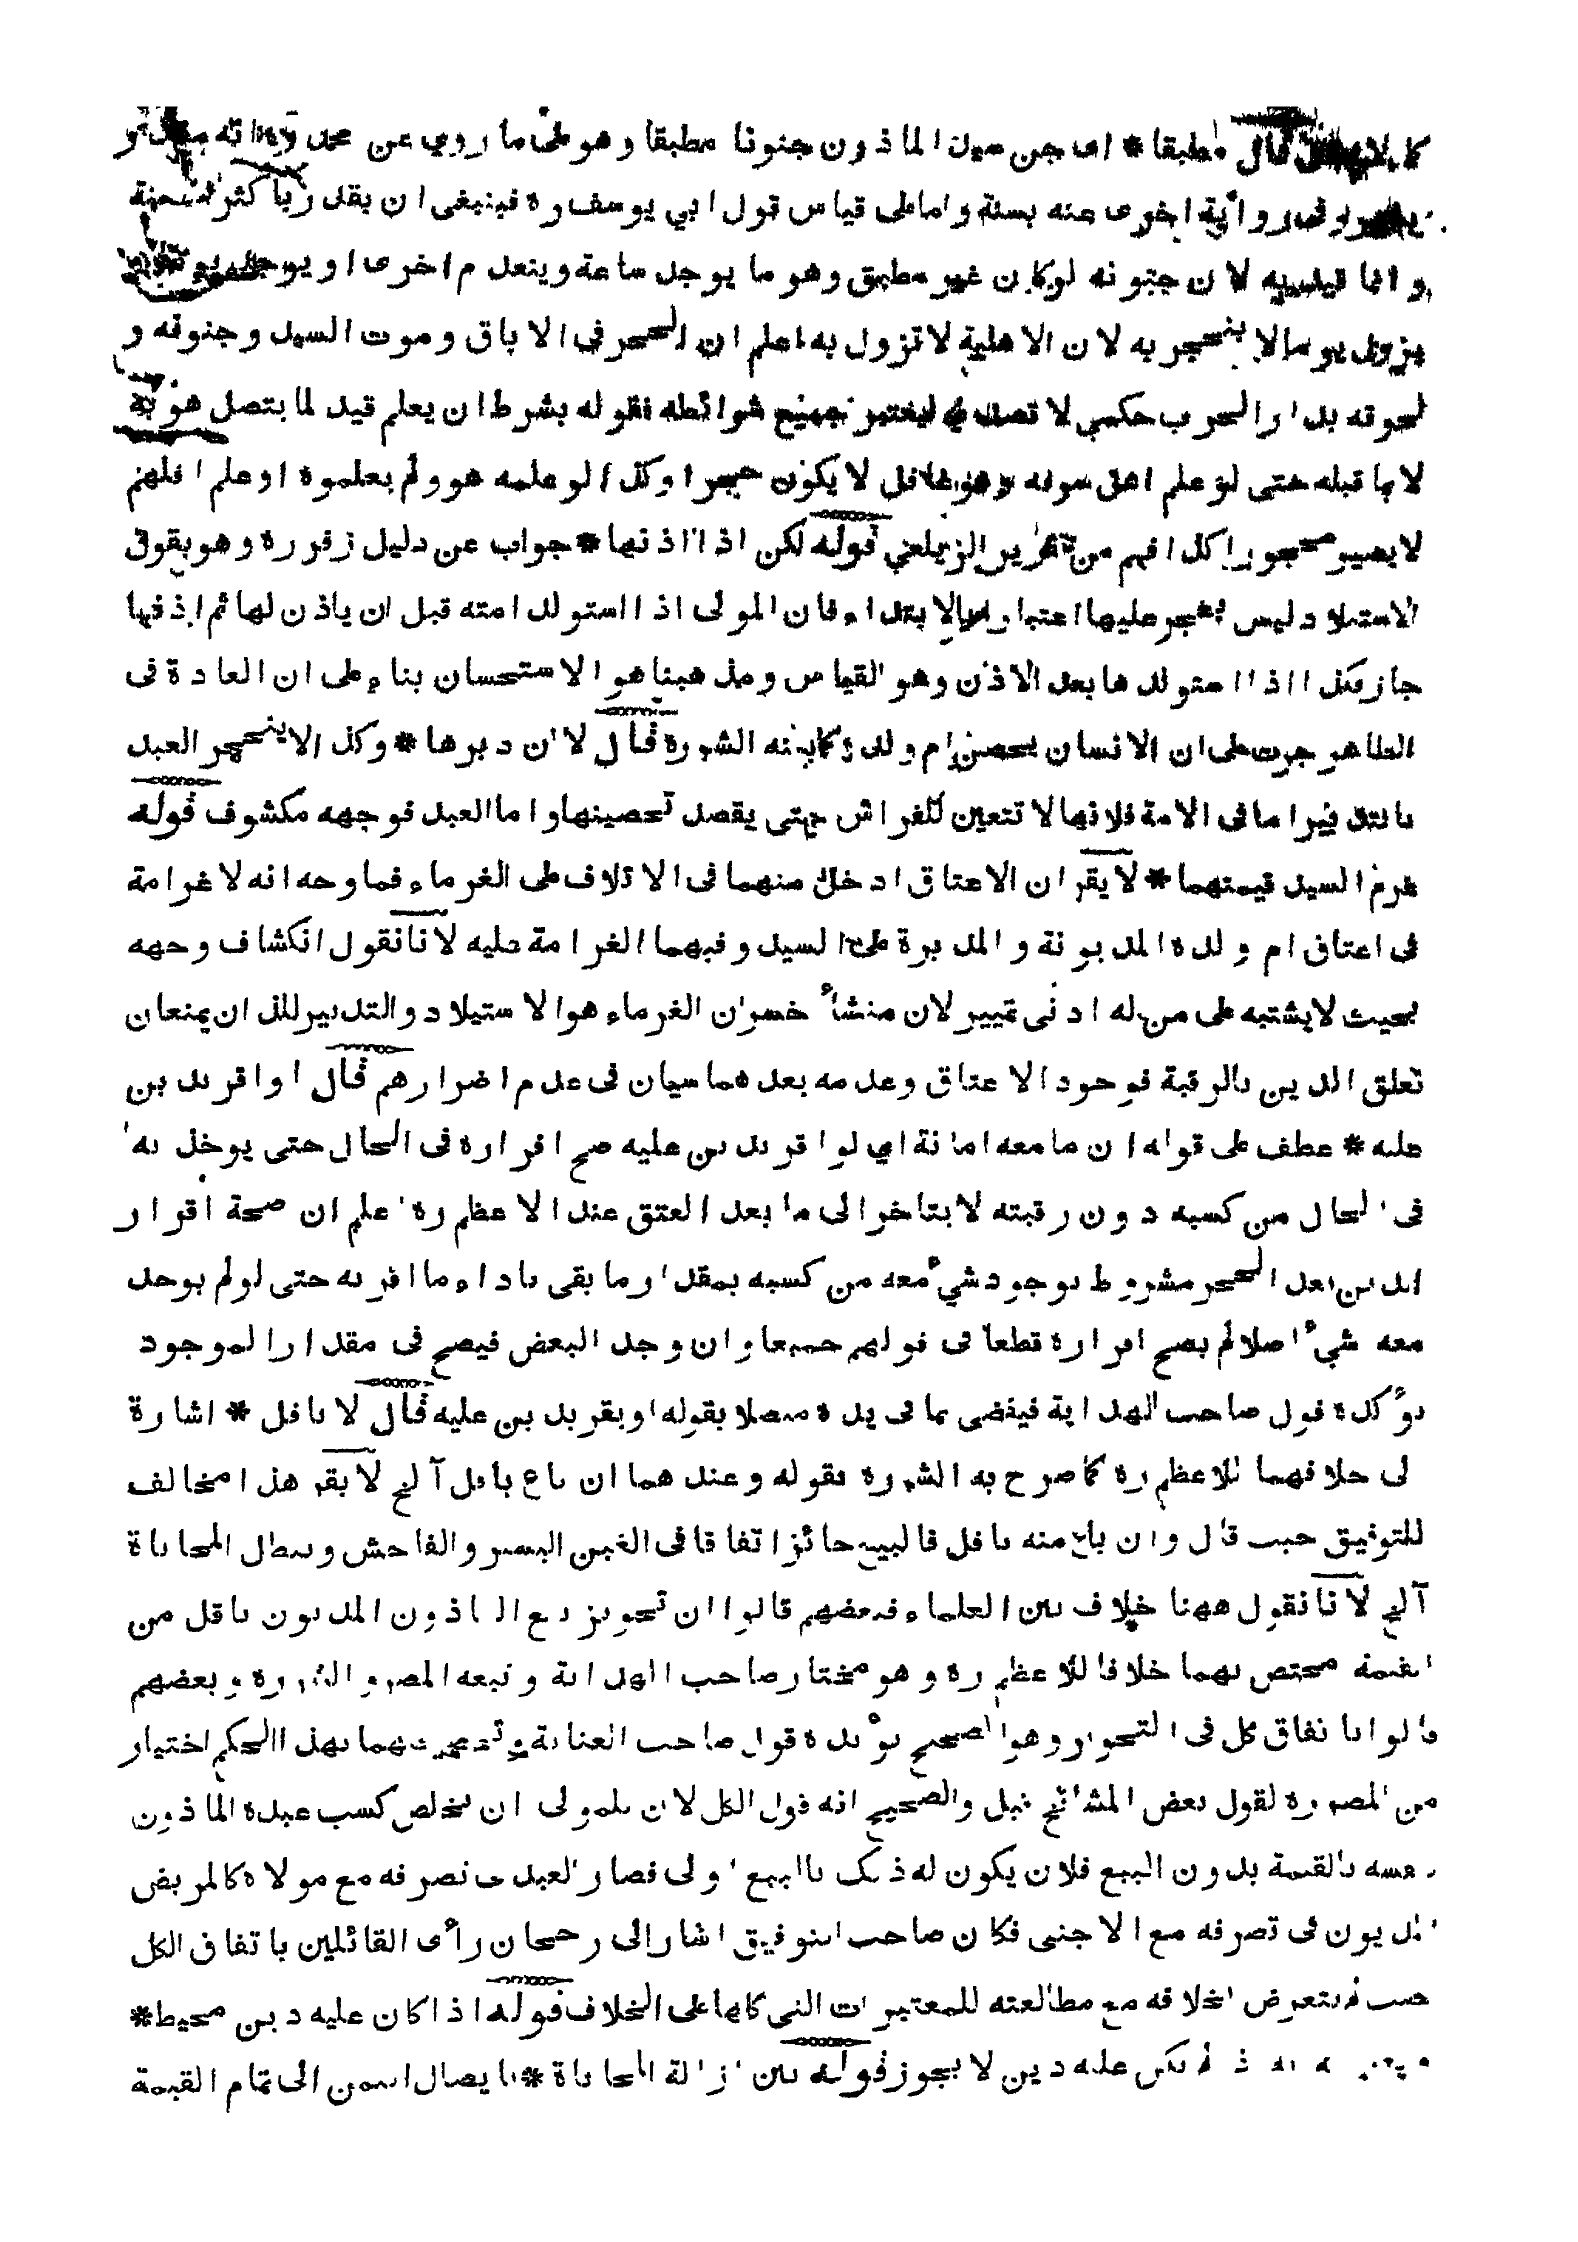 كما لا يخفى قال مطبقا * اى جن سيد الماذون جنونا مطبقا وهو على ما روي عن محمد ره انه مقدر
وفى رواية اخرى عنه بسنة واما على قياس قول ابي يوسف ره فينبغى ان يقدر باكثر السنة
وانما قيد به لان جنونه لو كان غير مطبق وهو ما يوجد ساعة وينعدم اخرى او يوجد يوما و
يزول يوما لا ينحجر به لان الاهلية لا تزول به اعلم ان الحجر فى الاباق وموت السيد وجنونه و
لحوقه بدار الحرب حكمي لا قصدي ليعتبر جميع شرائطه فقوله بشرط ان يعلم قيد لما يتصل هو به
لا بما قبله حتى لو علم اهل سوقه وهو غافل لا يكون حجرا وكذا لو علمه هو ولم يعلموه او علم اقلهم
لا يصير محجورا كذا فهم من تقرير الزيلعي قوله لكن اذا اذنها * جواب عن دليل زفر ره وهو يقول
الاستيلاد ليس بحجر عليها اعتبارا بالابتداء فان المولى اذا استولد امته قبل ان ياذن لها ثم اذنها
جاز فكذا اذا استولدها بعد الاذن وهو القياس ومذهبنا هو الاستحسان بناء على ان العادة فى
الظاهر جرت على ان الانسان يحصن ام ولده كما بينه الشمره قال لا ان دبرها * وكذا لا ينحجر العبد
بالتدبير اما فى الامة فلانها لا تتعين للفراش حتى يقصد تحصينها واما العبد فوجهه مكشوف قوله
غرم السيد قيمتهما * لا يقر ان الاعتاق ادخل منهما فى الاتلاف على الغرماء فما وجه انه لا غرامة
فى اعتاق ام ولده المديونة والمدبرة على السيد وفيهما الغرامة عليه لانا نقول انكشاف وجهه
بحيث لا يشتبه على من له ادنى تمييز لان منشأ خسران الغرماء هو الاستيلاد والتدبير اللذان يمنعان
تعلق الدين بالرقبة فوجود الاعتاق وعدمه بعدهما سيان فى عدم اضرارهم قال او اقر بدين
عليه * عطف على قوله ان ما معه امانة اي لو اقر بدين عليه صح اقراره فى الحال حتى يوخذ به
فى الحال من كسبه دون رقبته لا يتاخر الى ما بعد العتق عند الاعظم ره اعلم ان صحة اقرار
الدين بعد الحجر مشروط بوجود شيء معه من كسبه بمقدار ما بقى باداء ما اقر به حتى لو لم يوجد
معه شيء اصلا لم يصح اقراره قطعا فى قولهم جميعا وان وجد البعض فيصح فى مقدار الموجود
يؤكده قول صاحب الهداية فيقضى بما فى يده متصلا بقوله او يقر بدين عليه قال لا باقل * اشارة
الى خلافهما للاعظم ره كما صرح به الشمره بقوله وعندهما ان باع باقل آلخ لا يقر هذا مخالف
للتوفيق حيث قال وان باع منه باقل فالبيع جائز اتفاقا فى الغبن اليسير والفاحش ويبطل المحاباة
آلخ لانا نقول ههنا خلاف بين العلماء فبعضهم قالوا ان تجويز بيع الماذون المديون باقل من
القيمة مختص بهما خلافا للاعظم ره وهو مختار صاحب الهداية وتبعه المصره والشمره وبعضهم
قالوا باتفاق كل فى التجوز وهو الصحيح يؤيده قول صاحب العناية وتخصيصهما بهذا الحكم اختيار
من المصره لقول بعض المشائخ قيل والصحيح انه قول الكل لان للمولى ان يخلص كسب عبده الماذون
نفسه بالقيمة بدون البيع فلان يكون له ذلك بالبيع اولى فصار العبد فى تصرفه مع مولاه كالمريض
المديون فى تصرفه مع الاجنبى فكان صاحب التوفيق اشار الى رجحان رأى القائلين باتفاق الكل
حيث لم يتعرض لخلافه مع مطالعته للمعتبرات التى كلها على الخلاف قوله اذا كان عليه دين محيط *
لم يكن عليه دين لا يجوز قوله بين ازالة المحاباة * بايصال الثمن الى تمام القيمة